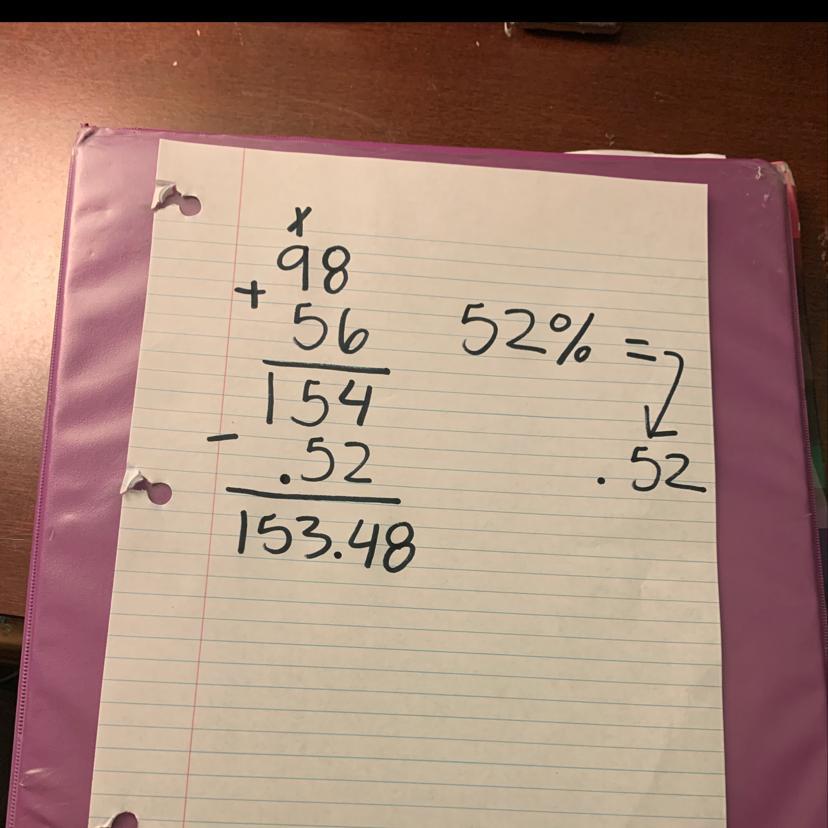 x
98
+ 56
154
- .52
153.48
52% =
.52